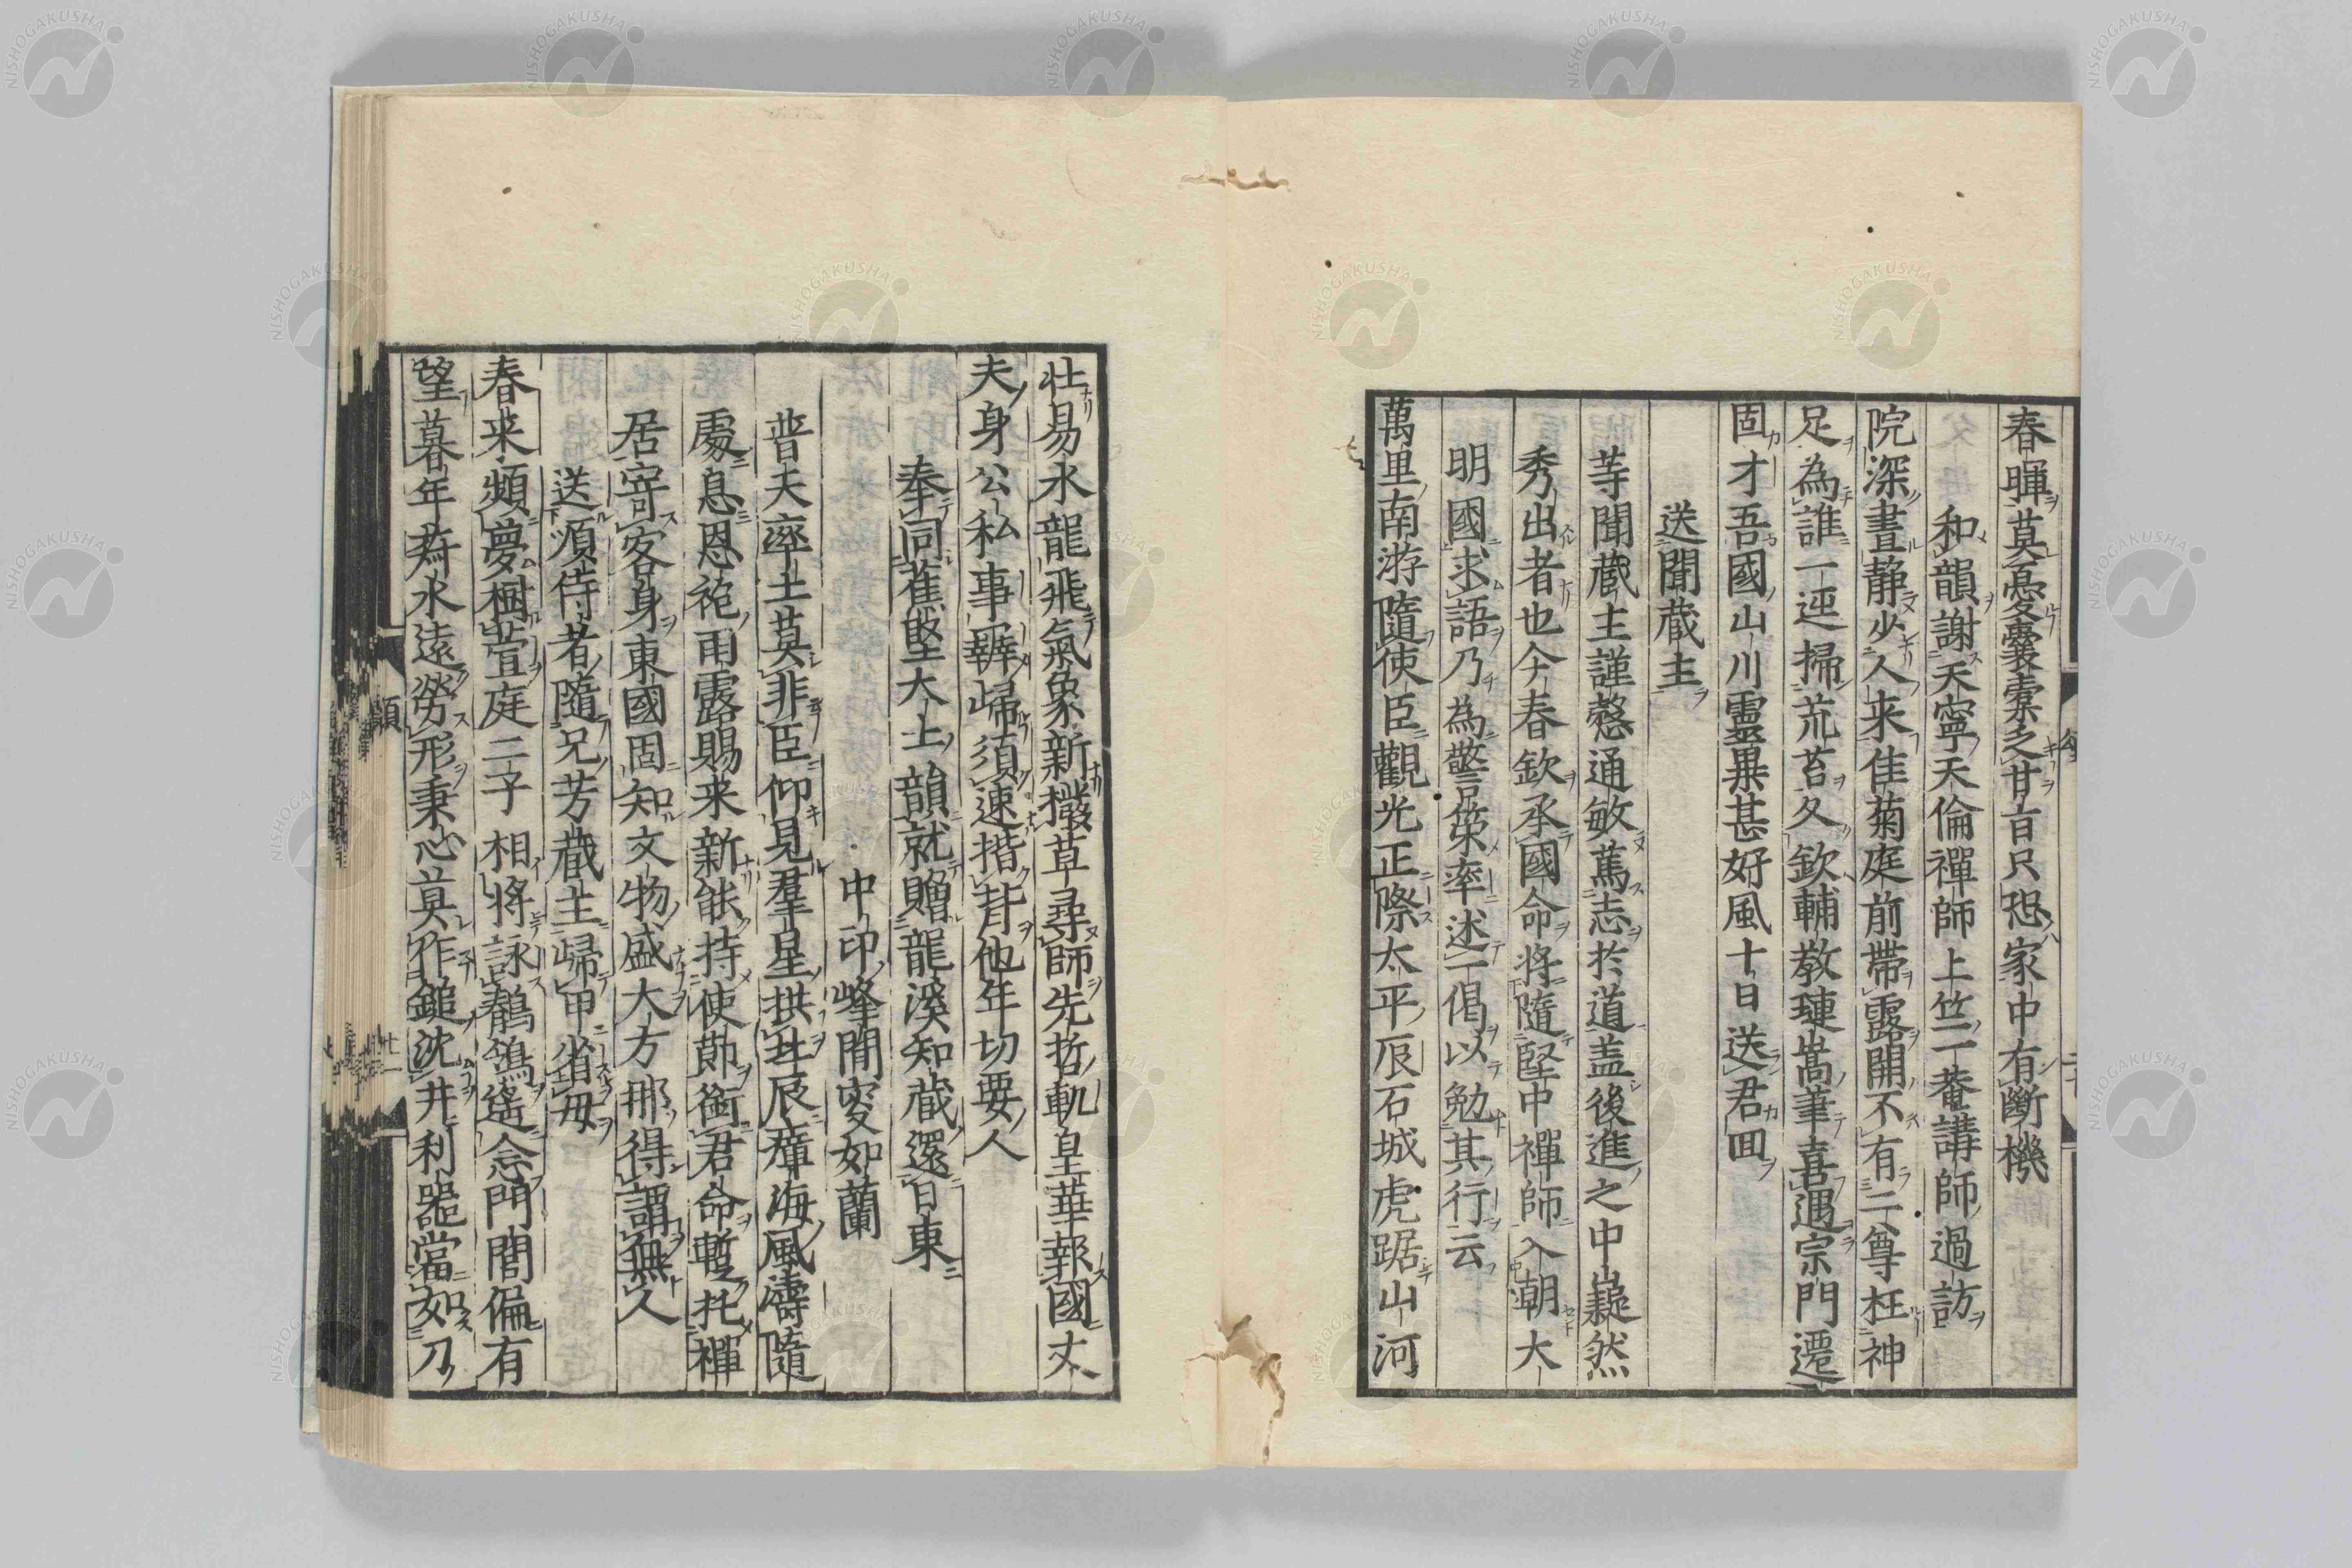 春暉莫忘囊橐之甘旨只恐家中有斷機
和韻謝天寧天倫禪師上竺一菴講師過訪
院深晝靜少人来佳菊庭前帶露開不有二尊枉神
足為誰一逕掃荒苔久欽輔教璉嵩筆喜遇宗門遷
固才吾國山川靈異甚好風十日送君囬
送聞蔵主
等聞蔵主謹慤通敏篤志於道盖後進之中嶷然
秀出者也今春欽承國命將隨堅中禪師入朝大
明國求語乃為警策率述一偈以勉其行云
萬里南游隨使臣觀光正際太平辰石城虎踞山河
壮易水龍飛氣象新撥草尋師先哲軌皇華報國丈
夫身公私事辦歸須速揩背他年切要人
奉同蕉堅大士韻就贈龍溪知蔵還日東
中印峰閒叟如蘭
普天率土莫非臣仰見羣星拱北辰瘴海風濤隨
處息恩袍雨露賜来新能持使節銜君命暫托禪
居寄客身東國固知文物盛大方那得謂無人
送頎侍者隨兄芳蔵主歸甲省母
春来頻夢樹萱庭二子相將詠鶺鴒遙念門閭偏有
望暮年為永遠勞形秉心莫作鎚沈井利器當如刀